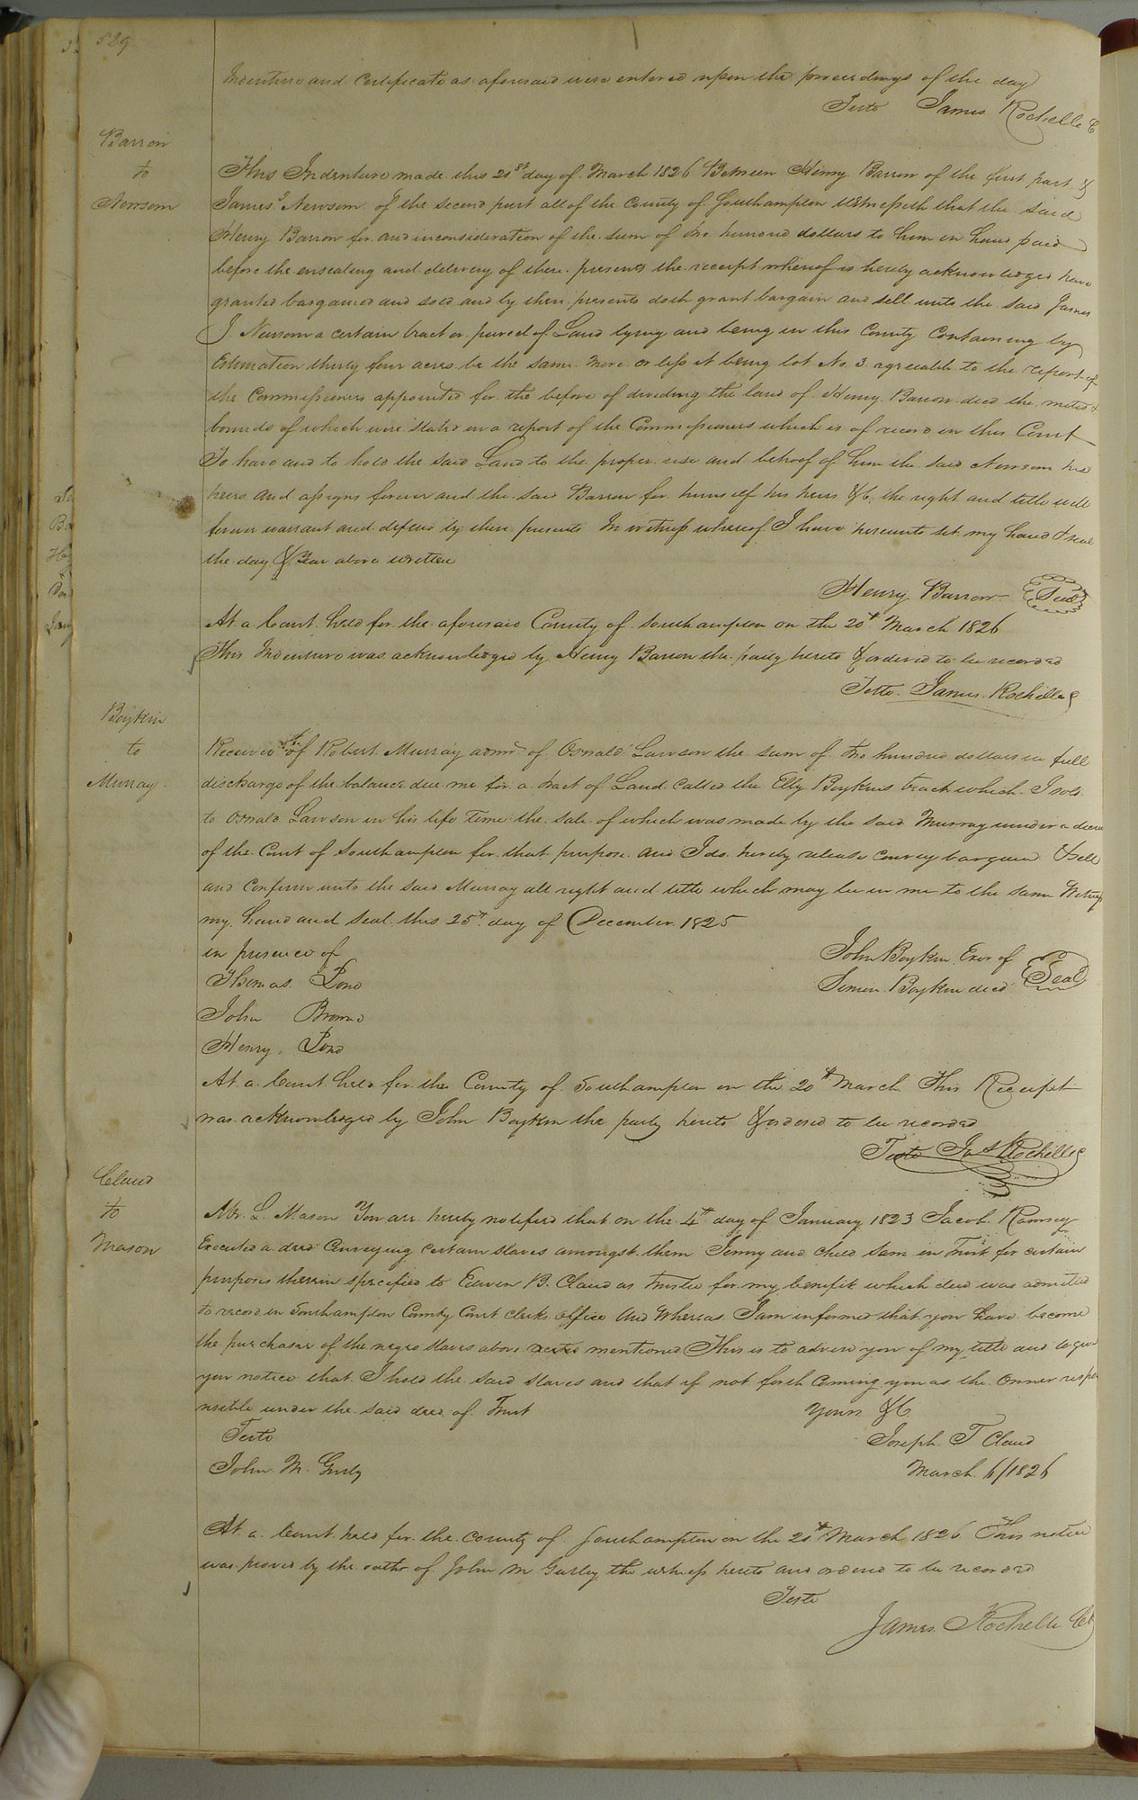 529
Indenture and Certificate as aforesaid were entered upon the proceedings of the day
Teste James Rochelle C
Barrow
to
Newsom
This Indenture made this 20st day of March 1826 Between Henry Barrow of the first part &
James J Newsom of the second part all of the County of Southampton Witnesseth that the said
Henry Barrow for and inconsideration of the sum of two hundred dollars to him in hand paid
before the ensealing and delivery of these presents the receipt whereof is hereby acknowledged have
granted bargained and sold and by these presents doth grant bargain and sell unto the said James
J. Newsom a certain tract or parcel of Land lying and being in this County Containing by
Estimation thirty four acres be the same more or less it being lot No 3 agreeable to the report of
the Commissioners appointed for the before of dividing the land of Henry Barrow decd the metes &
bounds of which were stated in a report of the Commissioners which is of record in this Court
To have and to hold the said Land to the proper use and behoof of him the said Newsom his
heirs and assigns forever and the said Barrow for himself his heirs &C. the right and title will
forever warrant and defend by these presents In witness whereof I have hereunto set my hand & seal
the day & Year above written
Henry Barrow Seal
At a Court held for the aforesaid County of Southampton on the 20th March 1826
This Indenture was acknowledged by Henry Barrow the party hereto & ordered to be recorded
Teste James Rochelle C
Boykin
to
Murray
Received of Robert Murray admr of Oswald Lawson the sum of two hundred dollars in full
discharge of the balance due me for a tract of Land Called the Elly Boykins tract which I sold
to Oswald Lawson in his life Time the sale of which was made by the said Murray under a decree
of the Court of Southampton for that purpose and I do hereby release convey bargain & sell
and Confirm unto the said Murray all right and title which may be in me to the same Witness
my hand and seal this 25th day of December 1825
in presence of
John Boykin Exor of
Thomas Pond
Simon Boykin decd Seal
John Browne
Henry Pond
At a Court held for the County of Southampton on the 20th March This Receipt
was acknowledged by John Boykin the party hereto & ordered to be recorded
Teste Jas Rochelle C
Claud
to
Mason
Mr. L. Mason You are hereby notified that on the 4th day of January 1823 Jacob Ramsey
Executed a deed Conveying Certain slaves amongst them Jenny and child Sam in Trust for certain
purposes therein specified to Edwin B. Claud as trustee for my benefit which deed was admitted
to record in Southampton County Court clerks office And Whereas I am informed that you have become
the purchaser of the negro slaves above mentioned This is to advise you of my title and to give
you notice that I hold the said slaves and that if not forth Coming you as the Owner respo
nsible under the said deed of Trust
Yours &C
Teste
Joseph T Claud
John M. Gurley
March 6/1826
At a Court held for the county of Southampton on the 20th March 1826 This notice
was proved by the oath of John M Gurley the witness hereto and ordered to be recorded
Teste
James Rochelle Ck